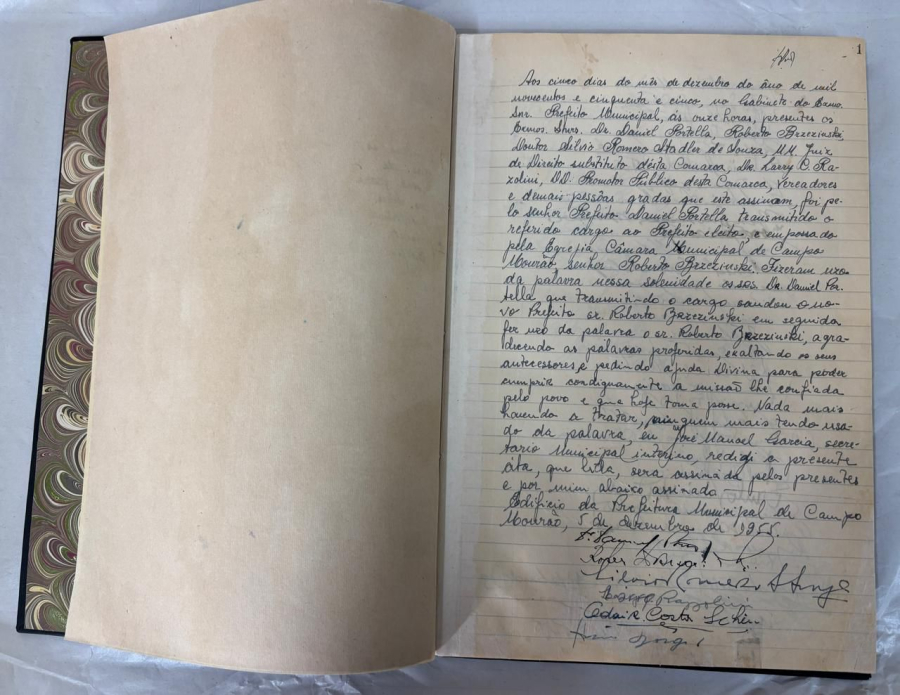 1
Aos cinco dias do mês de dezembro do ano de mil
novecentos e cinquenta e cinco, no Gabinete do Exmo.
Snr. Prefeito Municipal, ás onze horas, presentes os
Exmos. Snrs. Dr. Daniel Portella, Roberto Brzezinski,
Doutor Silvio Romero Stadler de Souza, M.M. Juiz
de Direito substituto désta Comarca, Dr. Larry C. Ra-
zolini, DD. Promotor Público desta Comarca, Vereadores
e demais pessôas gradas que este assinam, foi pe-
lo senhor Prefeito Daniel Portella transmitido o
referido cargo ao Prefeito eleito, e empossado
pela Egregia Câmara Municipal de Campo
Mourão, senhor Roberto Brzezinski. Fizeram uso
da palavra nessa solenidade os srs. Dr. Daniel Por-
tella que transmitindo o cargo saudou o no-
vo Prefeito sr. Roberto Brzezinski em seguida
fez uso da palavra o sr. Roberto Brzezinski, agra-
decendo as palavras proferidas, exaltando os seus
antecessores, e pedindo ajuda Divina para poder
cumprir condignamente a missão lhe confiada
pelo povo e que hoje toma posse. Nada mais
havendo a tratar, ninguem mais tendo usa-
do da palavra, eu José Manoel Garcia, secre-
tario Municipal interino, redigi a presente
áta, que lida, sera assinada pelos presentes
e por mim abaixo assinado
Edificio da Prefeitura Municipal de Campo
Mourão, 5 de dezembro de 1955.
Silvio Romero S Souza
Odair Costa